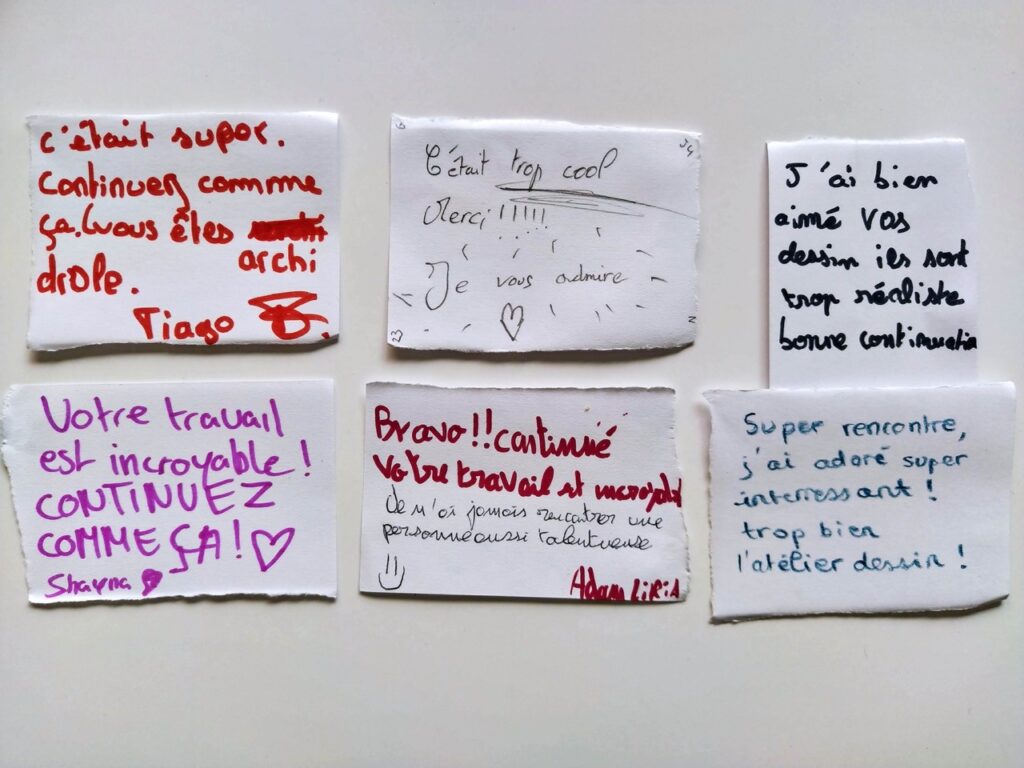 c'était super.
Continuez commme
ça. (vous êtes
archi
drole.
Tiago
C'était trop cool
Merci !!!!!
Je vous admire
J'ai bien
aimé vos
dessin ils sont
trop réaliste
bonne continuation
Votre travail
est incroyable !
CONTINUEZ
COMME ÇA !
Shayna
Bravo !! continué
votre travail et incroyabl
Je n'ai jamais rencontrer une
personne aussi talentueuse
Adam LiRiA
Super rencontre,
j'ai adoré super
interressant !
trop bien
l'atélier dessin !